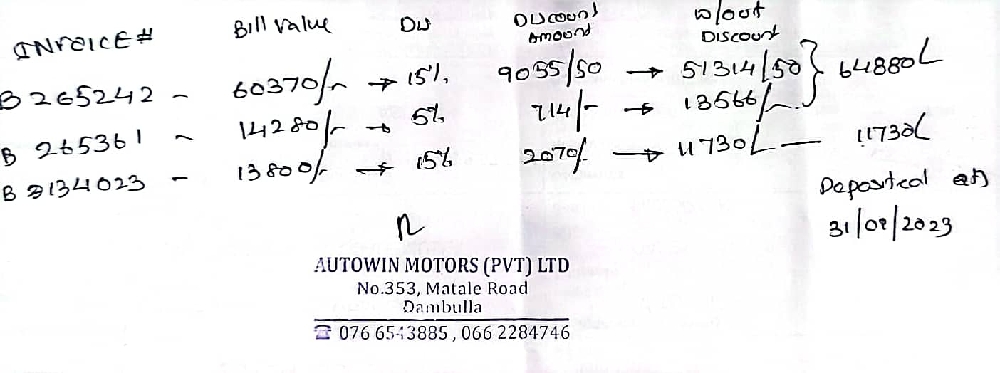 INVOICE # Bill Value Dis Discount Amount w/out Discount
B 265242 - 60370/- → 15% 9055/50 → 51314/50 } 64880/-
B 265361 - 14280/- → 5% 714/- → 13566/-
B 134023 - 13800/- → 15% 2070/- → 11730/- — 11730/-
Deposited
2023
AUTOWIN MOTORS (PVT) LTD
No.353, Matale Road
Dambulla
☎ 076 6543885 , 066 2284746